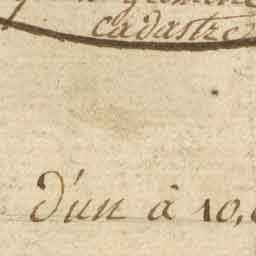 cadastre
d'un à 10,